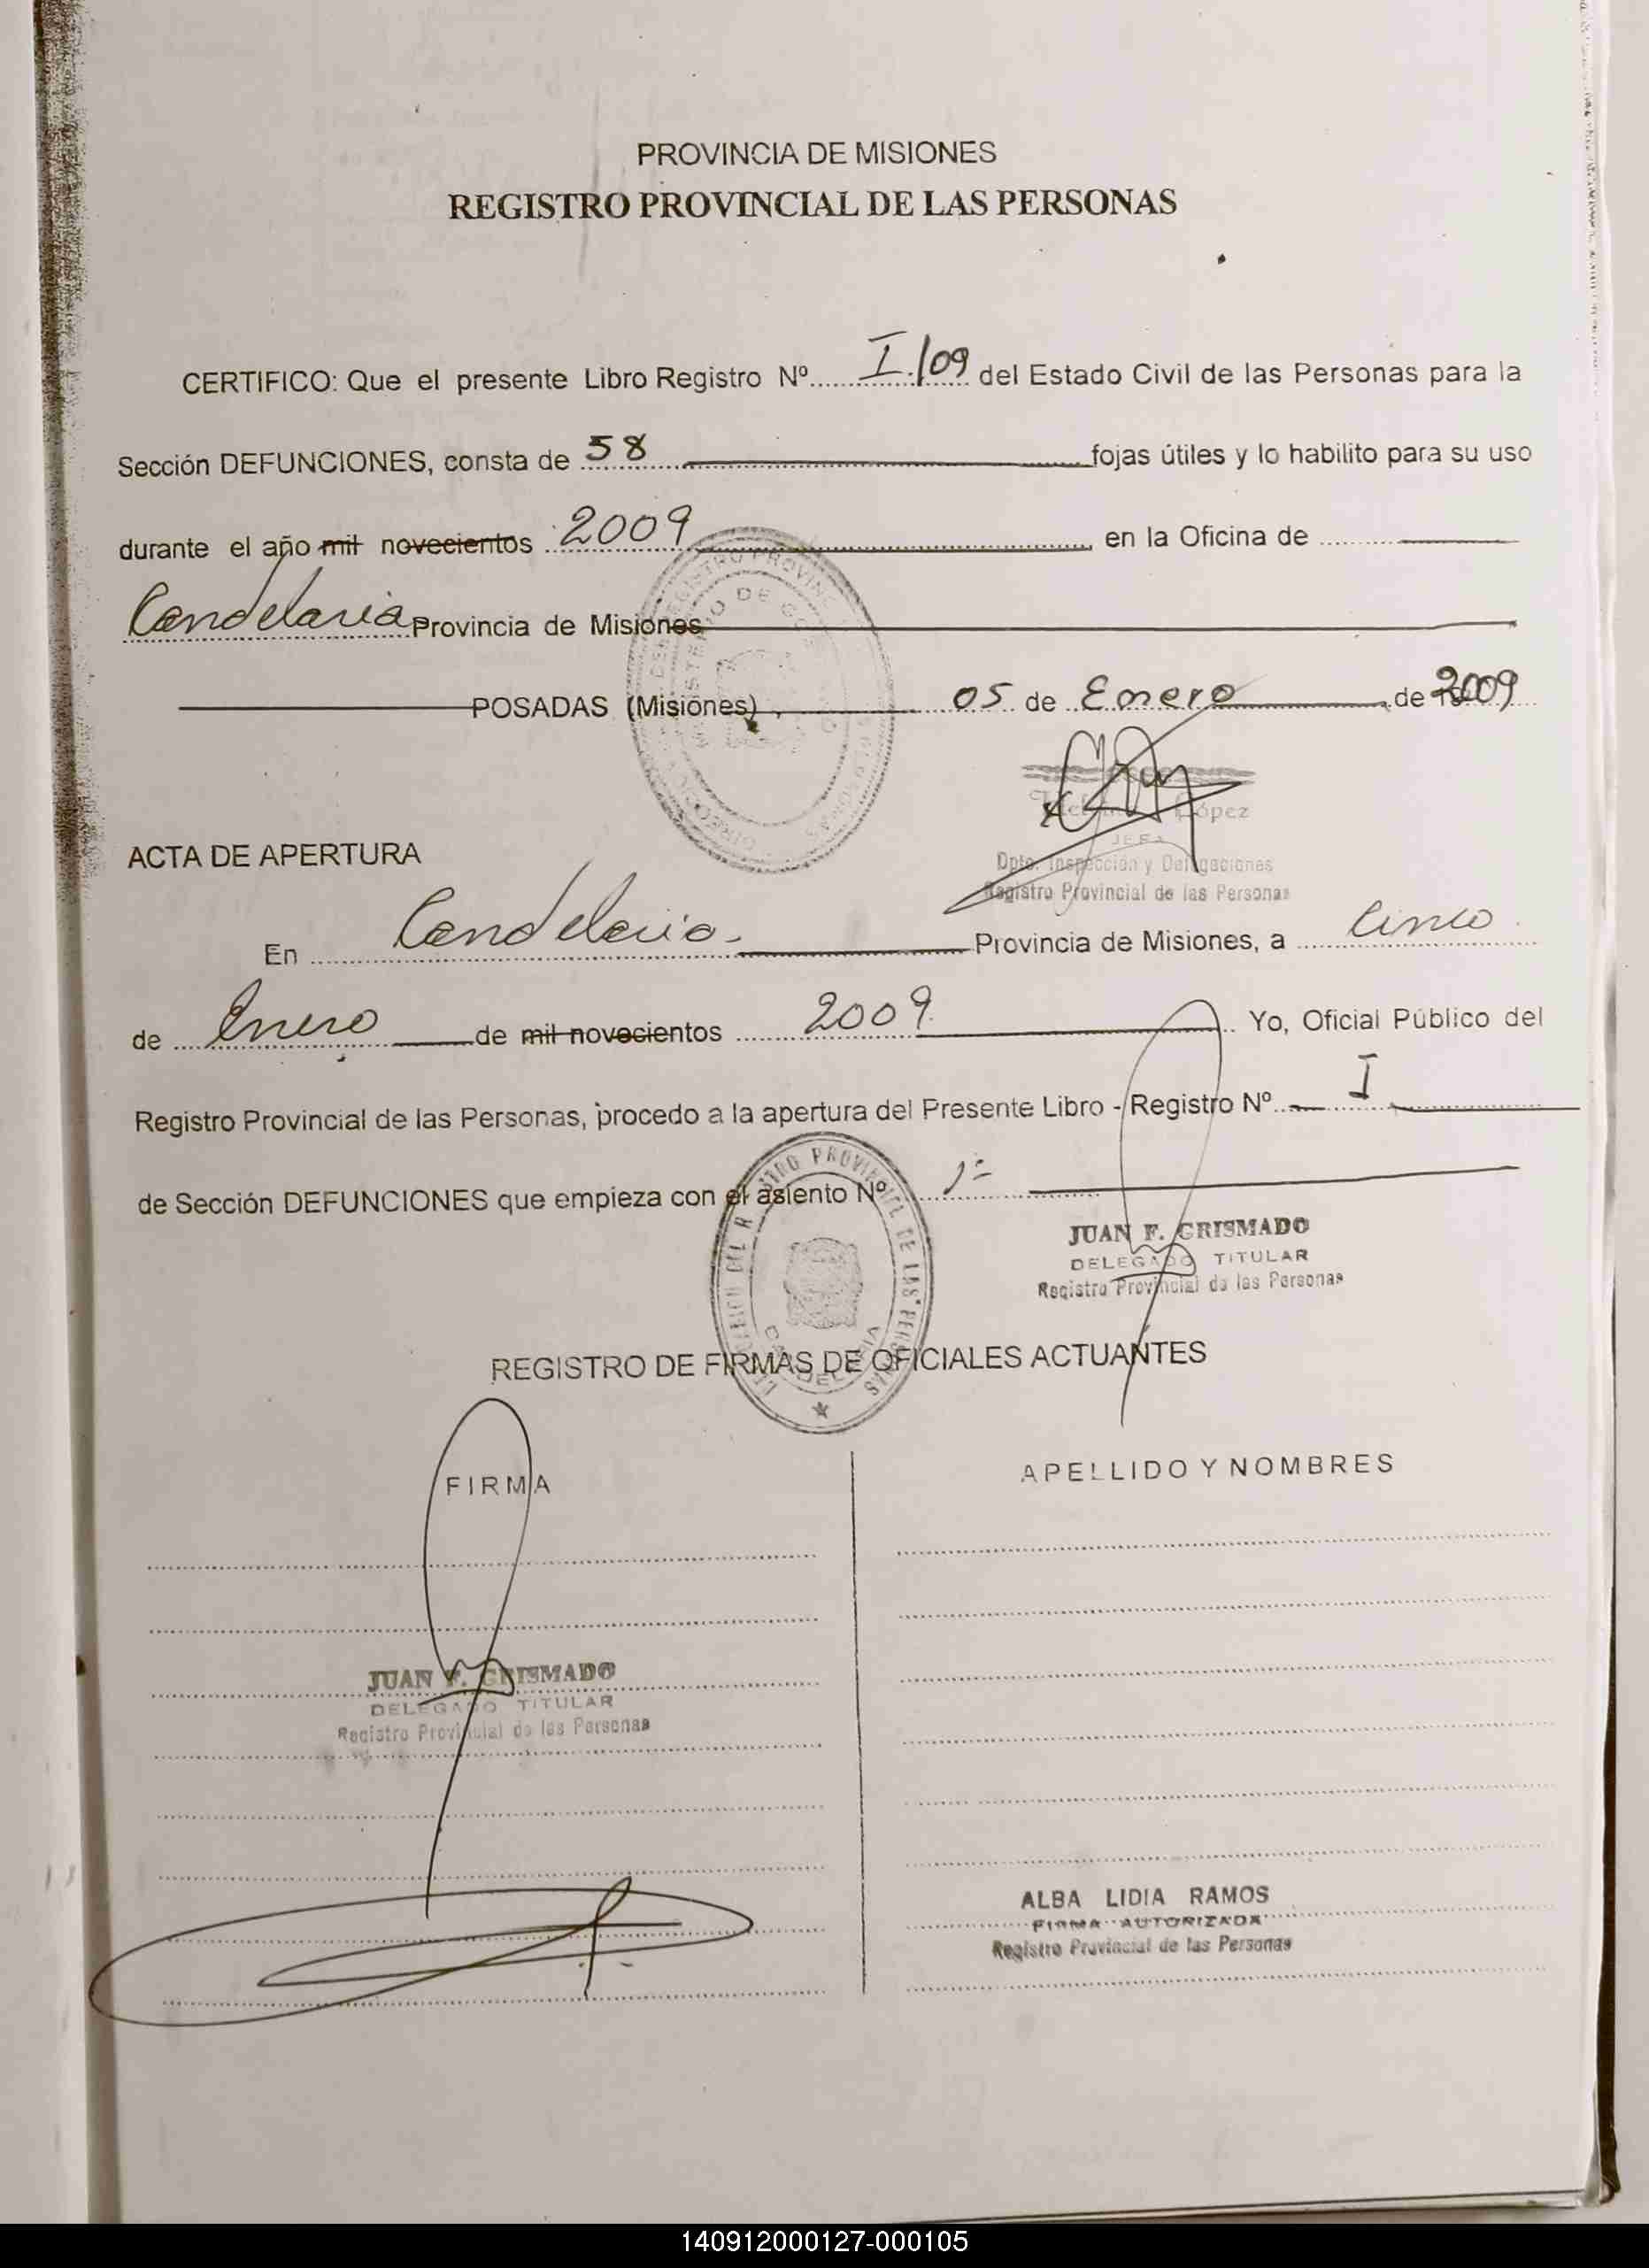 PROVINCIA DE MISIONES
REGISTRO PROVINCIAL DE LAS PERSONAS
CERTIFICO: Que el presente Libro Registro Nº I/09 del Estado Civil de las Personas para la
Sección DEFUNCIONES, consta de 58 fojas útiles y lo habilito para su uso
durante el año mil novecientos 2009 en la Oficina de
Candelaria Provincia de Misiones
POSADAS (Misiones), 05 de Enero de 2009
López
JEFA
Dpto. Inspección y Delegaciones
Registro Provincial de las Personas
ACTA DE APERTURA
En Candelaria Provincia de Misiones, a cinco
de Enero de mil novecientos 2009 Yo, Oficial Público del
Registro Provincial de las Personas, procedo a la apertura del Presente Libro - Registro Nº I
de Sección DEFUNCIONES que empieza con el asiento Nº 1-
JUAN F. GRISMADO
DELEGADO TITULAR
Registro Provincial de las Personas
REGISTRO DE FIRMAS DE OFICIALES ACTUANTES
FIRMA
APELLIDO Y NOMBRES
JUAN F. GRISMADO
DELEGADO TITULAR
Registro Provincial de las Personas
ALBA LIDIA RAMOS
FIRMA AUTORIZADA
Registro Provincial de las Personas
140912000127-000105